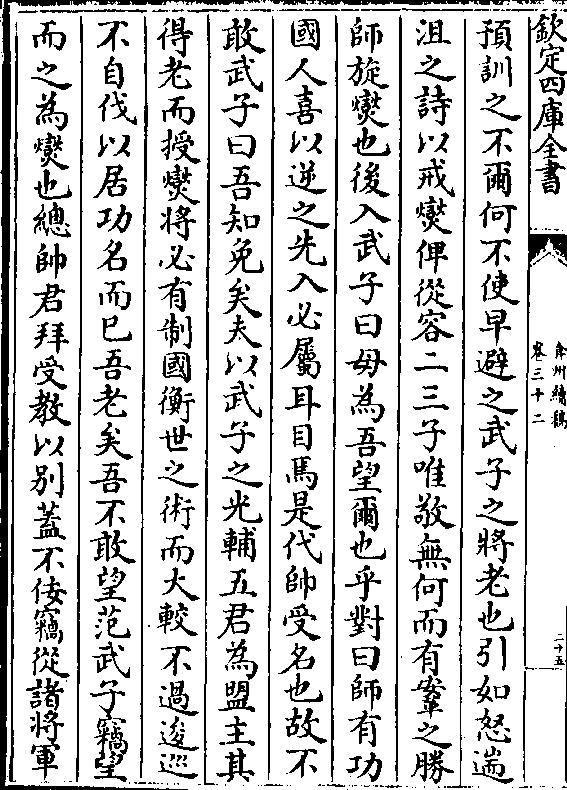 欽定四庫全書
弇州續稿
卷三十二
二十五
預訓之不爾何不使早避之武子之將老也引如怒遄
沮之詩以戒爕俾從容二三子唯敬無何而有鞌之勝
師旋爕也後入武子曰毋為吾望爾也乎對曰師有功
國人喜以逆之先入必屬耳目焉是代帥受名也故不
敢武子曰吾知免矣夫以武子之光輔五君為盟主其
得老而授爕將必有制國衡世之術而大較不過逡巡
不自伐以居功名而已吾老矣吾不敢望范武子竊望
而之為爕也總帥君拜受教以别蓋不佞竊從諸將軍